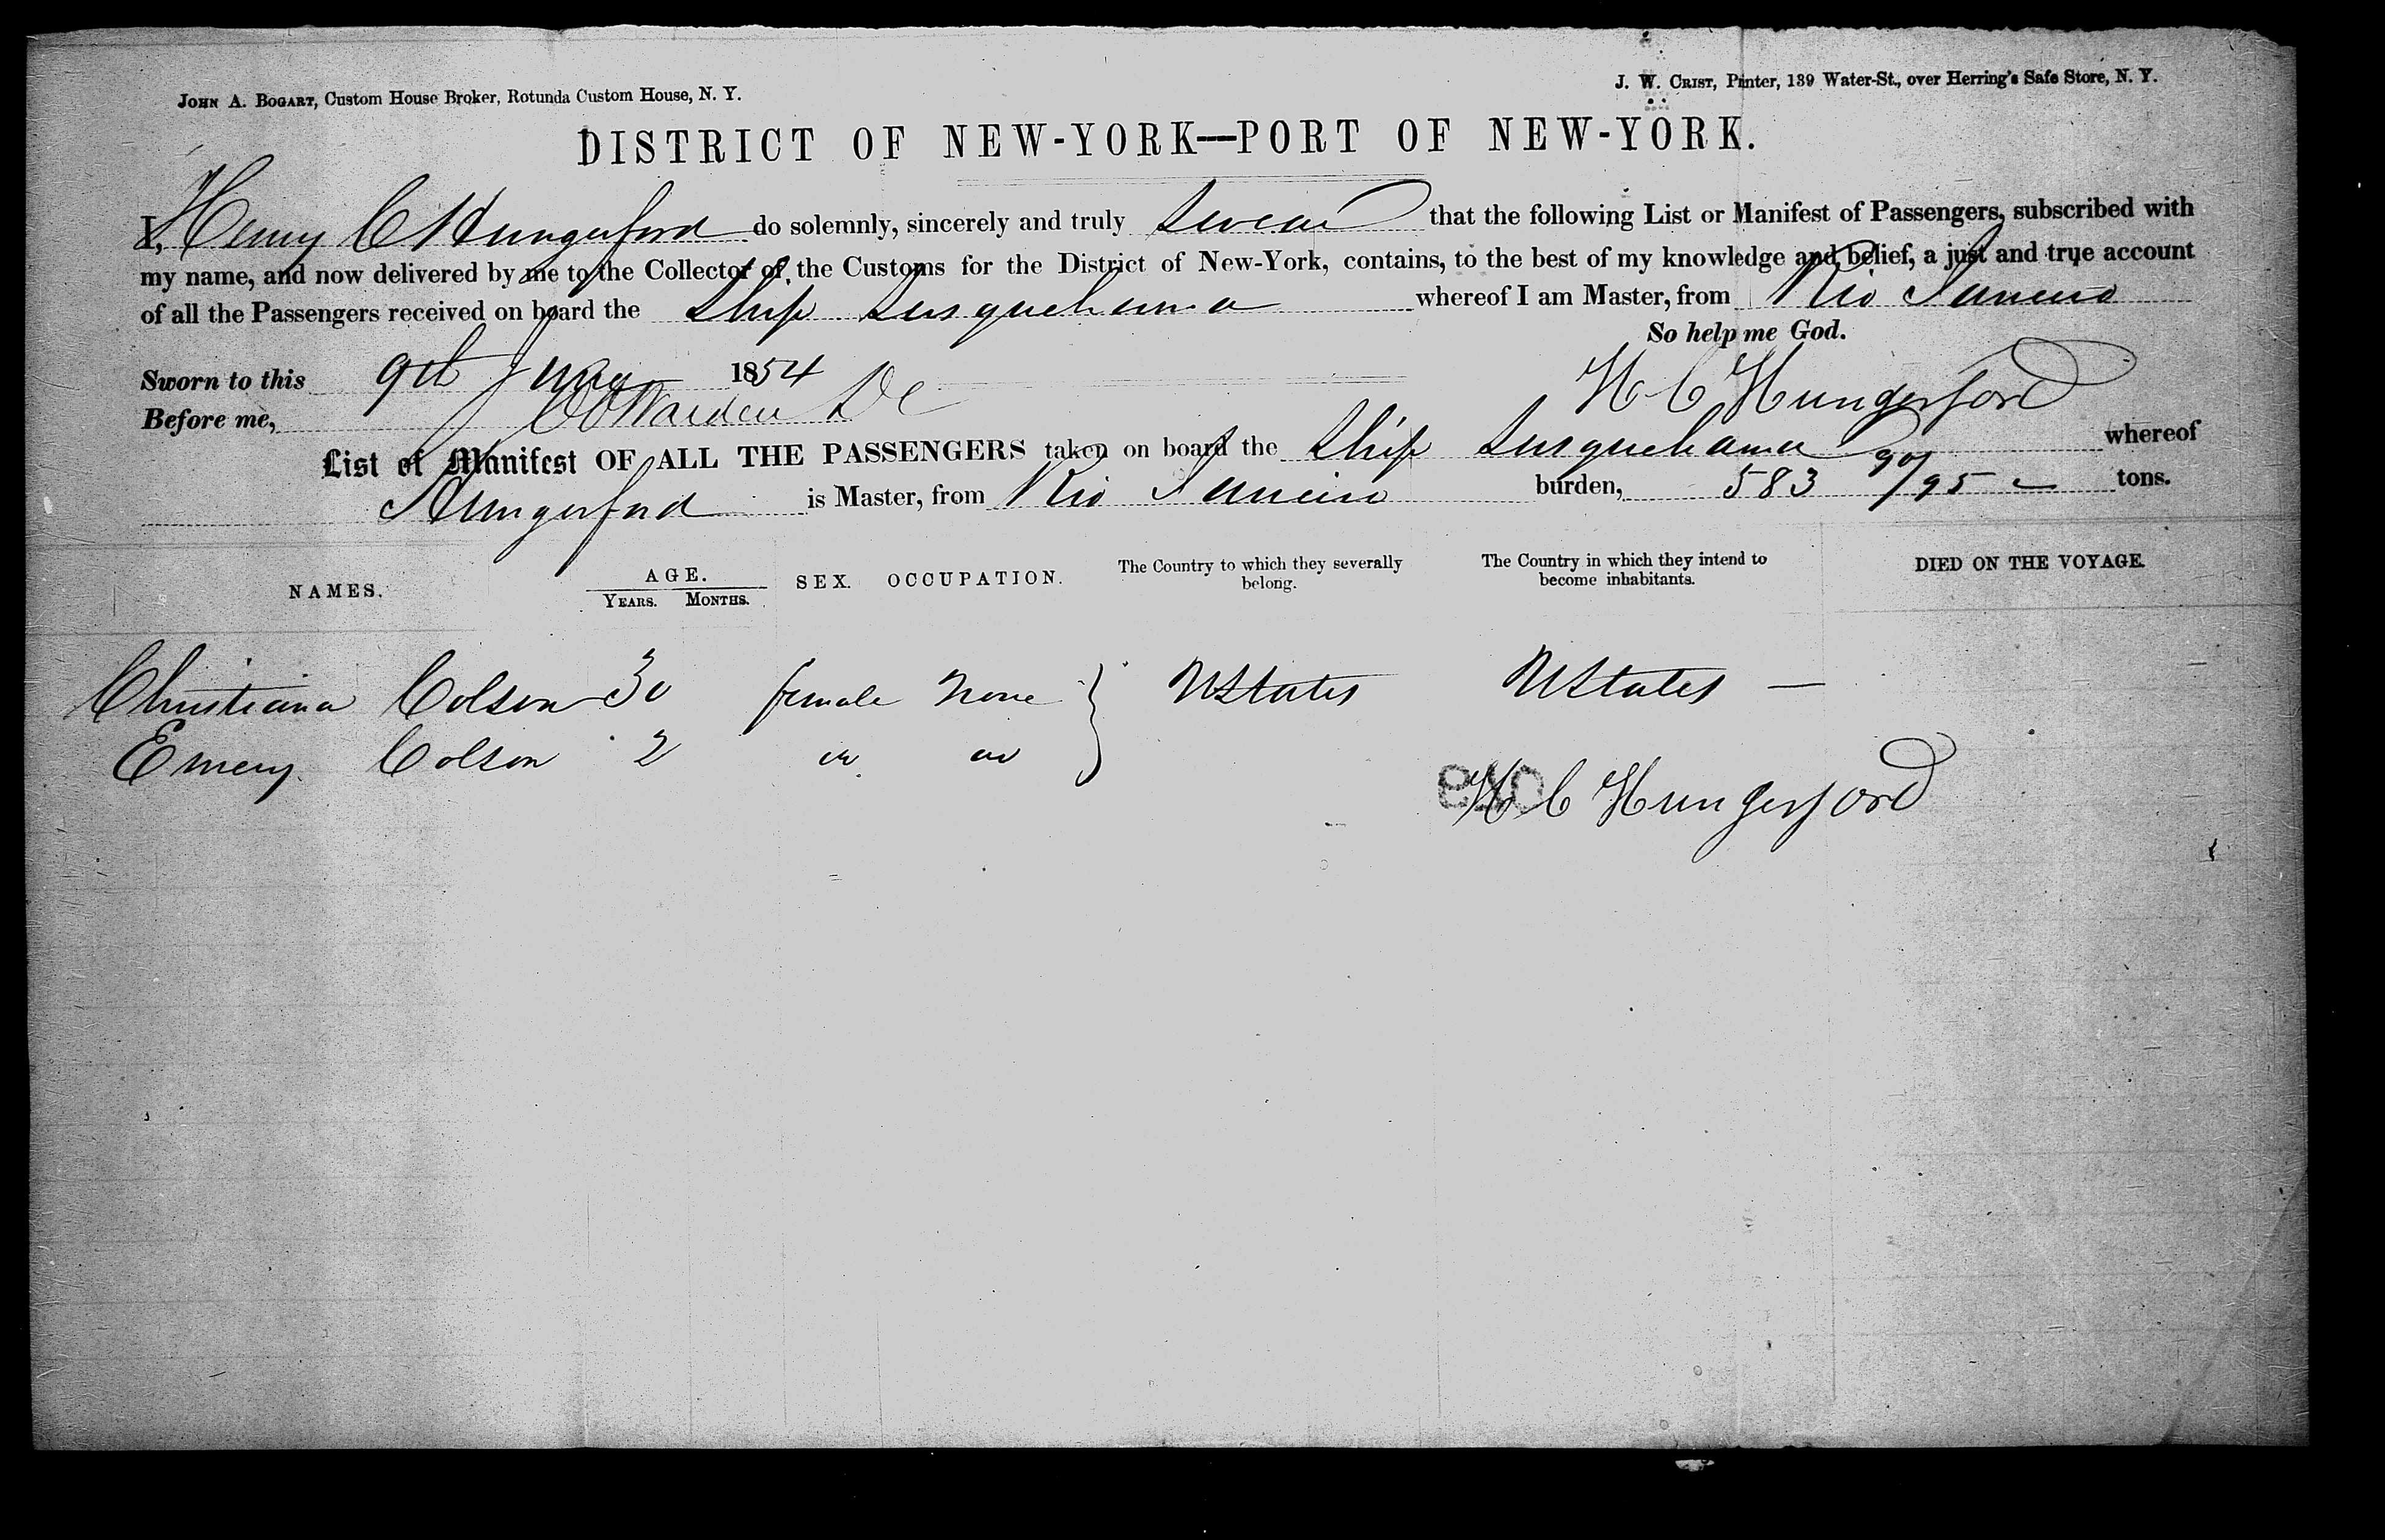 JOHN A. BOGART, Custom House Broker, Rotunda Custom House, N. Y.
J. W. CRIST, Printer, 139 Water-St., over Herring's Safe Store, N. Y.
DISTRICT OF NEW-YORK—PORT OF NEW-YORK.
I, Henry C Hungerford do solemnly, sincerely and truly swear that the following List or Manifest of Passengers, subscribed with
my name, and now delivered by me to the Collector of the Customs for the District of New-York, contains, to the best of my knowledge and belief, a just and true account
of all the Passengers received on board the Ship Susquehanna whereof I am Master, from Rio Janeiro
So help me God.
Sworn to this 9th 1854
H C Hungerford
Before me,
List of Manifest OF ALL THE PASSENGERS taken on board the Ship Susquehanna whereof
Hungerford is Master, from Rio Janeiro burden, 583 90/95 tons.
NAMES. AGE. YEARS. MONTHS. SEX. OCCUPATION. The Country to which they severally belong. The Country in which they intend to become inhabitants. DIED ON THE VOYAGE.
Christiana Colson 30 female None } UStates UStates —
Emery Colson 2 " "
H C Hungerford